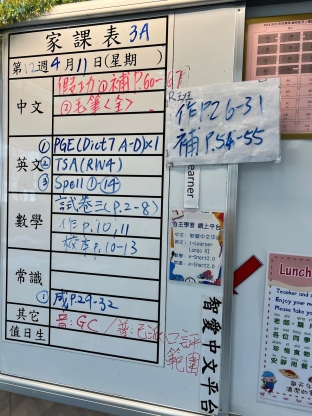 家課表 3A
第12週4月11日(星期 )
中文
假功 ①補P.60-67
②毛筆<全>
R班
作P.26-31
補P.54-55
英文
① PGE(Dict 7 A-D)x1
② TSA(RW4)
③ Spell ①-⑭
數學
試卷三(P.2-8)
作P.10, 11
校本p.10-13
常識
① 成P.29-32
其它
音:GC / 普:
口評
範圍
值日生
Learner
自主學習 網上平台
智愛中文平台
Lunch
Teacher and
Enjoy your